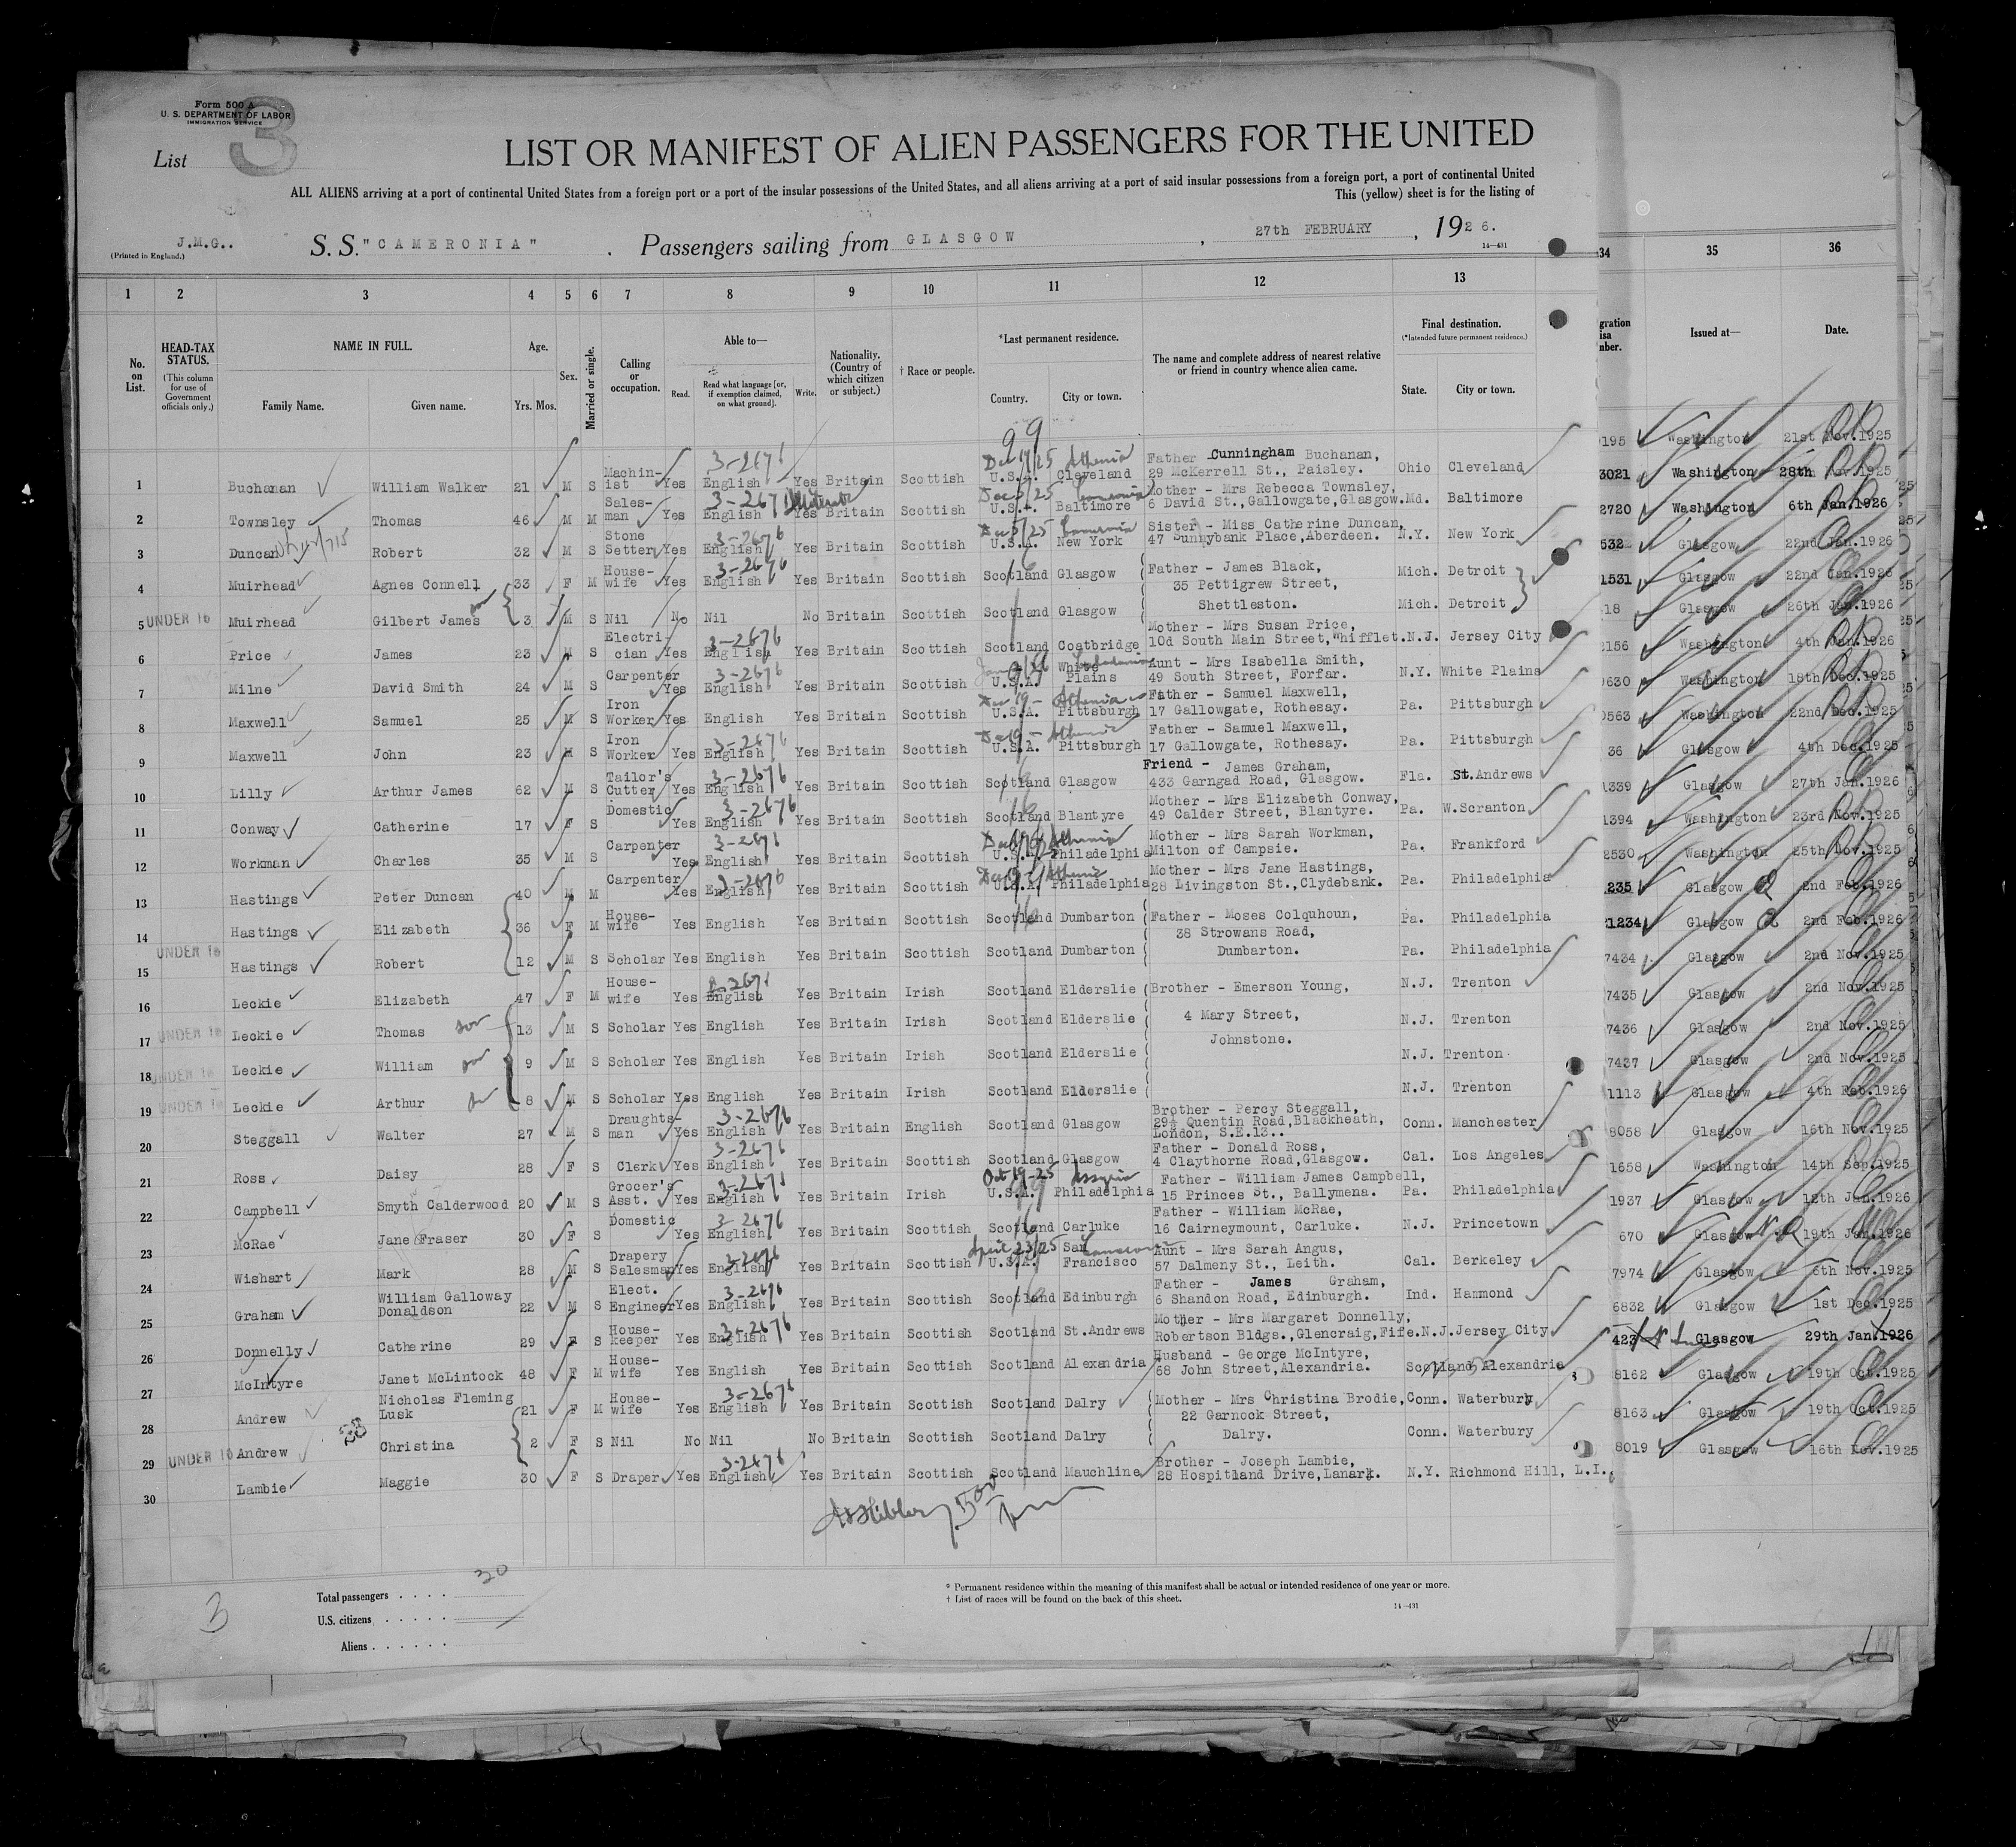 Form 500 A
U. S. DEPARTMENT OF LABOR
IMMIGRATION SERVICE
List 3
LIST OR MANIFEST OF ALIEN PASSENGERS FOR THE UNITED
ALL ALIENS arriving at a port of continental United States from a foreign port or a port of the insular possessions of the United States, and all aliens arriving at a port of said insular possessions from a foreign port, a port of continental United
This (yellow) sheet is for the listing of
J.M.G..
(Printed in England.)
S. S. "CAMERONIA" . Passengers sailing from GLASGOW , 27th FEBRUARY , 1926.
14—431
1 2 3 4 5 6 7 8 9 10 11 12 13 34 35 36
No. on List.
HEAD-TAX STATUS.
(This column for use of Government officials only.)
NAME IN FULL.
Family Name. Given name.
Age.
Yrs. Mos.
Sex.
Married or single.
Calling or occupation.
Able to—
Read. Read what language [or, if exemption claimed, on what ground]. Write.
Nationality. (Country of which citizen or subject.)
† Race or people.
*Last permanent residence.
Country. City or town.
The name and complete address of nearest relative or friend in country whence alien came.
Final destination.
(*Intended future permanent residence.)
State. City or town.
gration
isa
mber.
Issued at—
Date.
1 Buchanan William Walker 21 M S Machin-ist Yes English Yes Britain Scottish U.S.A. Cleveland Father Cunningham Buchanan, 29 McKerrell St., Paisley. Ohio Cleveland
2 Townsley Thomas 46 M M Sales-man Yes English Yes Britain Scottish U.S.A. Baltimore Mother - Mrs Rebecca Townsley, 6 David St., Gallowgate, Glasgow. Md. Baltimore
3 Duncan Robert 32 M S Stone Setter Yes English Yes Britain Scottish U.S.A. New York Sister - Miss Catherine Duncan, 47 Sunnybank Place, Aberdeen. N.Y. New York
4 Muirhead Agnes Connell 33 F M House-wife Yes English Yes Britain Scottish Scotland Glasgow Father - James Black, 35 Pettigrew Street, Mich. Detroit
5 UNDER 16 Muirhead Gilbert James son 3 M S Nil No Nil No Britain Scottish Scotland Glasgow Shettleston. Mich. Detroit
6 Price James 23 M S Electri-cian Yes English Yes Britain Scottish Scotland Coatbridge Mother - Mrs Susan Price, 10d South Main Street, Whifflet. N.J. Jersey City
7 Milne David Smith 24 M S Carpenter Yes English Yes Britain Scottish U.S.A. White Plains Aunt - Mrs Isabella Smith, 49 South Street, Forfar. N.Y. White Plains
8 Maxwell Samuel 25 M S Iron Worker Yes English Yes Britain Scottish U.S.A. Pittsburgh Father - Samuel Maxwell, 17 Gallowgate, Rothesay. Pa. Pittsburgh
9 Maxwell John 23 M S Iron Worker Yes English Yes Britain Scottish U.S.A. Pittsburgh Father - Samuel Maxwell, 17 Gallowgate, Rothesay. Pa. Pittsburgh
10 Lilly Arthur James 62 M S Tailor's Cutter Yes English Yes Britain Scottish Scotland Glasgow Friend - James Graham, 433 Garngad Road, Glasgow. Fla. St.Andrews
11 Conway Catherine 17 F S Domestic Yes English Yes Britain Scottish Scotland Blantyre Mother - Mrs Elizabeth Conway, 49 Calder Street, Blantyre. Pa. W.Scranton
12 Workman Charles 35 M S Carpenter Yes English Yes Britain Scottish U.S.A. Philadelphia Mother - Mrs Sarah Workman, Milton of Campsie. Pa. Frankford
13 Hastings Peter Duncan 40 M M Carpenter Yes English Yes Britain Scottish U.S.A. Philadelphia Mother - Mrs Jane Hastings, 28 Livingston St., Clydebank. Pa. Philadelphia
14 Hastings Elizabeth 36 F M House-wife Yes English Yes Britain Scottish Scotland Dumbarton Father - Moses Colquhoun, 38 Strowans Road, Pa. Philadelphia
15 UNDER 16 Hastings Robert 12 M S Scholar Yes English Yes Britain Scottish Scotland Dumbarton Dumbarton. Pa. Philadelphia
16 Leckie Elizabeth 47 F M House-wife Yes English Yes Britain Irish Scotland Elderslie Brother - Emerson Young, N.J. Trenton
17 UNDER 16 Leckie Thomas son 13 M S Scholar Yes English Yes Britain Irish Scotland Elderslie 4 Mary Street, N.J. Trenton
18 UNDER 16 Leckie William son 9 M S Scholar Yes English Yes Britain Irish Scotland Elderslie Johnstone. N.J. Trenton
19 UNDER 16 Leckie Arthur son 8 M S Scholar Yes English Yes Britain Irish Scotland Elderslie N.J. Trenton
20 Steggall Walter 27 M S Draughts-man Yes English Yes Britain English Scotland Glasgow Brother - Percy Steggall, 29½ Quentin Road, Blackheath, London, S.E.13.. Conn. Manchester
21 Ross Daisy 28 F S Clerk Yes English Yes Britain Scottish Scotland Glasgow Father - Donald Ross, 4 Claythorne Road, Glasgow. Cal. Los Angeles
22 Campbell Smyth Calderwood 20 M S Grocer's Asst. Yes English Yes Britain Irish U.S.A. Philadelphia Father - William James Campbell, 15 Princes St., Ballymena. Pa. Philadelphia
23 McRae Jane Fraser 30 F S Domestic Yes English Yes Britain Scottish Scotland Carluke Father - William McRae, 16 Cairneymount, Carluke. N.J. Princetown
24 Wishart Mark 28 M S Drapery Salesman Yes English Yes Britain Scottish U.S.A. San Francisco Aunt - Mrs Sarah Angus, 57 Dalmeny St., Leith. Cal. Berkeley
25 Graham William Galloway Donaldson 22 M S Elect. Engineer Yes English Yes Britain Scottish Scotland Edinburgh Father - James Graham, 6 Shandon Road, Edinburgh. Ind. Hammond
26 Donnelly Catherine 29 F S House-keeper Yes English Yes Britain Scottish Scotland St.Andrews Mother - Mrs Margaret Donnelly, Robertson Bldgs., Glencraig, Fife. N.J. Jersey City
27 McIntyre Janet McLintock 48 F M House-wife Yes English Yes Britain Scottish Scotland Alexandria Husband - George McIntyre, 68 John Street, Alexandria. Scotland Alexandria
28 Andrew Nicholas Fleming Lusk 21 F M House-wife Yes English Yes Britain Scottish Scotland Dalry Mother - Mrs Christina Brodie, 22 Garnock Street, Conn. Waterbury
29 UNDER 16 Andrew Christina 2 F S Nil No Nil No Britain Scottish Scotland Dalry Dalry. Conn. Waterbury
30 Lambie Maggie 30 F S Draper Yes English Yes Britain Scottish Scotland Mauchline Brother - Joseph Lambie, 28 Hospitland Drive, Lanark. N.Y. Richmond Hill, L.I.
195 Washington 21st Nov.1925
3021 Washington 28th Nov.1925
2720 Washington 6th Jan.1926
532 Glasgow 22nd Jan.1926
1531 Glasgow 22nd Jan.1926
18 Glasgow 26th Jan.1926
2156 Washington 4th Jan.1926
630 Washington 18th Dec.1925
0563 Washington 22nd Dec.1925
36 Glasgow 4th Dec.1925
1339 Glasgow 27th Jan.1926
1394 Washington 23rd Nov.1925
2530 Washington 25th Nov.1925
235 Glasgow 2nd Feb.1926
1234 Glasgow 2nd Feb.1926
7434 Glasgow 2nd Nov.1925
7435 Glasgow 2nd Nov.1925
7436 Glasgow 2nd Nov.1925
7437 Glasgow 2nd Nov.1925
1113 Glasgow 4th Feb.1926
8058 Glasgow 16th Nov.1925
1658 Washington 14th Sep.1925
1937 Glasgow 12th Jan.1926
670 Glasgow 19th Jan.1926
7974 Glasgow 6th Nov.1925
6832 Glasgow 1st Dec.1925
423 Glasgow 29th Jan.1926
8162 Glasgow 19th Oct.1925
8163 Glasgow 19th Oct.1925
8019 Glasgow 16th Nov.1925
Total passengers . . . . 30
U.S. citizens . . . . .
Aliens . . . . . .
3
* Permanent residence within the meaning of this manifest shall be actual or intended residence of one year or more.
† List of races will be found on the back of this sheet.
14—431